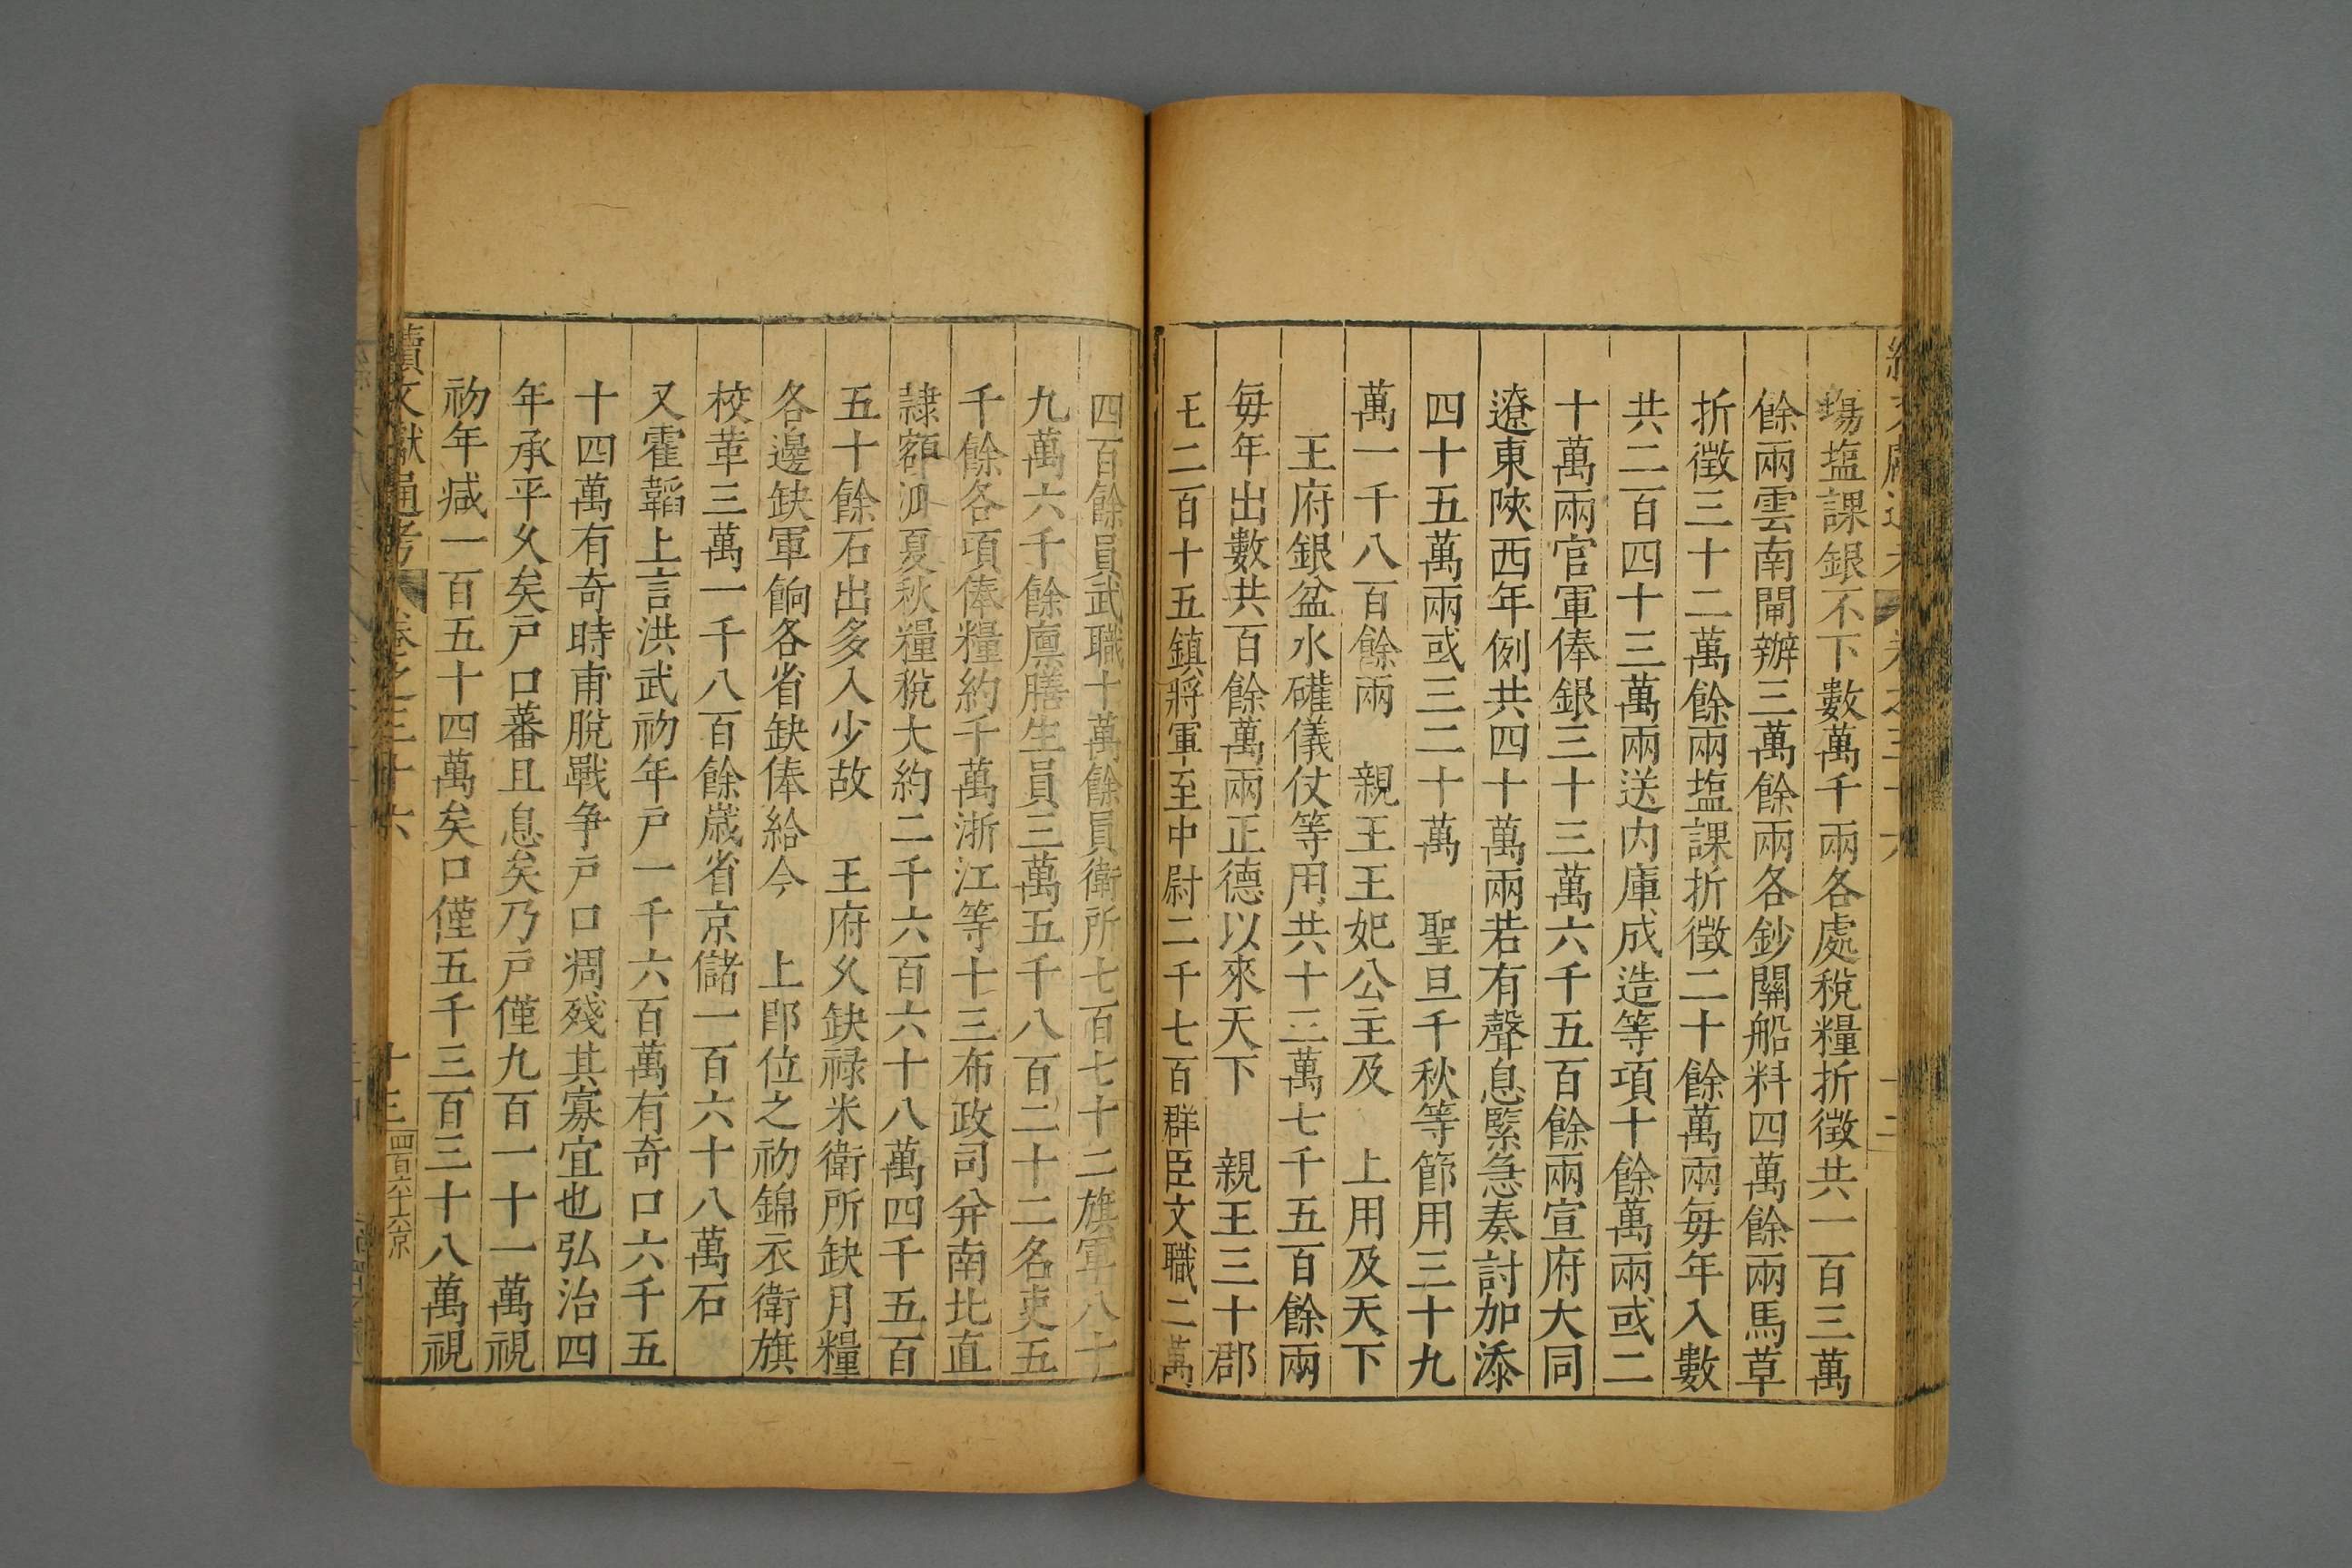 塲塩課銀不下數萬千兩各處稅糧折徵共一百三萬
餘兩雲南閘辦三萬餘兩各鈔關船料四萬餘兩馬草
折徵三十二萬餘兩塩課折徵二十餘萬兩每年入數
共二百四十三萬兩送内庫成造等項十餘萬兩或二
十萬兩官軍俸銀三十三萬六千五百餘兩宣府大同
遼東陝西年例共四十萬兩若有聲息緊急奏討加添
四十五萬兩或三二十萬　聖旦千秋等節用三十九
萬一千八百餘兩　親王王妃公主及　上用及天下
王府銀盆水礶儀仗等用共十三萬七千五百餘兩
每年出數共百餘萬兩正德以來天下　親王三十郡
王二百十五鎮將軍至中尉二千七百群臣文職二萬
四百餘員武職十萬餘員衛所七百七十二旗軍八十
九萬六千餘廪膳生員三萬五千八百二十二名吏五
千餘各項俸糧約千萬浙江等十三布政司并南北直
隷額派夏秋糧稅大約二千六百六十八萬四千五百
五十餘石出多入少故　王府久缺禄米衛所缺月糧
各邊缺軍餉各省缺俸給今　上即位之初錦衣衛旗
校革三萬一千八百餘歲省京儲一百六十八萬石
又霍韜上言洪武初年户一千六百萬有奇口六千五
十四萬有奇時甫脫戰争户口凋殘其寡宜也弘治四
年承平久矣户口蕃且息矣乃户僅九百一十一萬視
初年減一百五十四萬矣口僅五千三百三十八萬視
續文獻通考 卷之三十六 十三